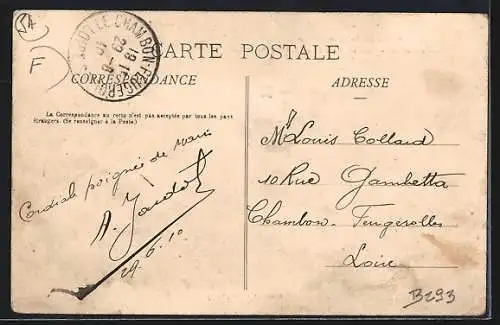 JA
F
CARTE POSTALE
CORRESPONDANCE
La Correspondance au recto n'est pas acceptée par tous les pays
étrangers. (Se renseigner à la Poste.)
Cordiale poignée de main
A.
29-6-10
LE CHAMBON-FEUGEROLLES
18
29 -6
10
ADRESSE
Mr Louis Collard
10 Rue Gambetta
Chambon-Feugerolles
Loire
B293